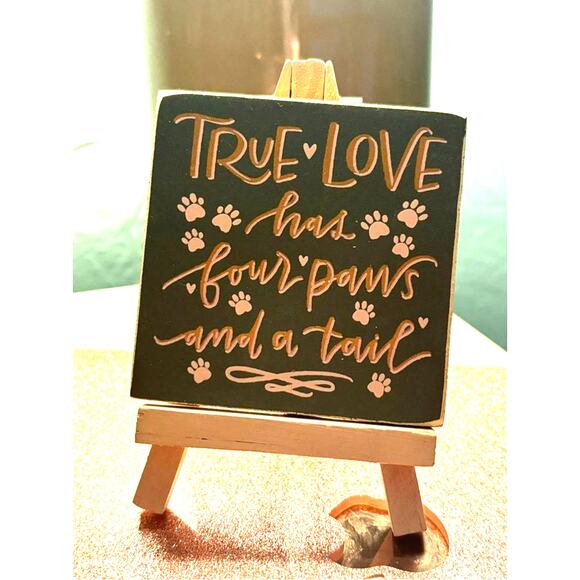 TRUE LOVE
has
four paws
and a tail